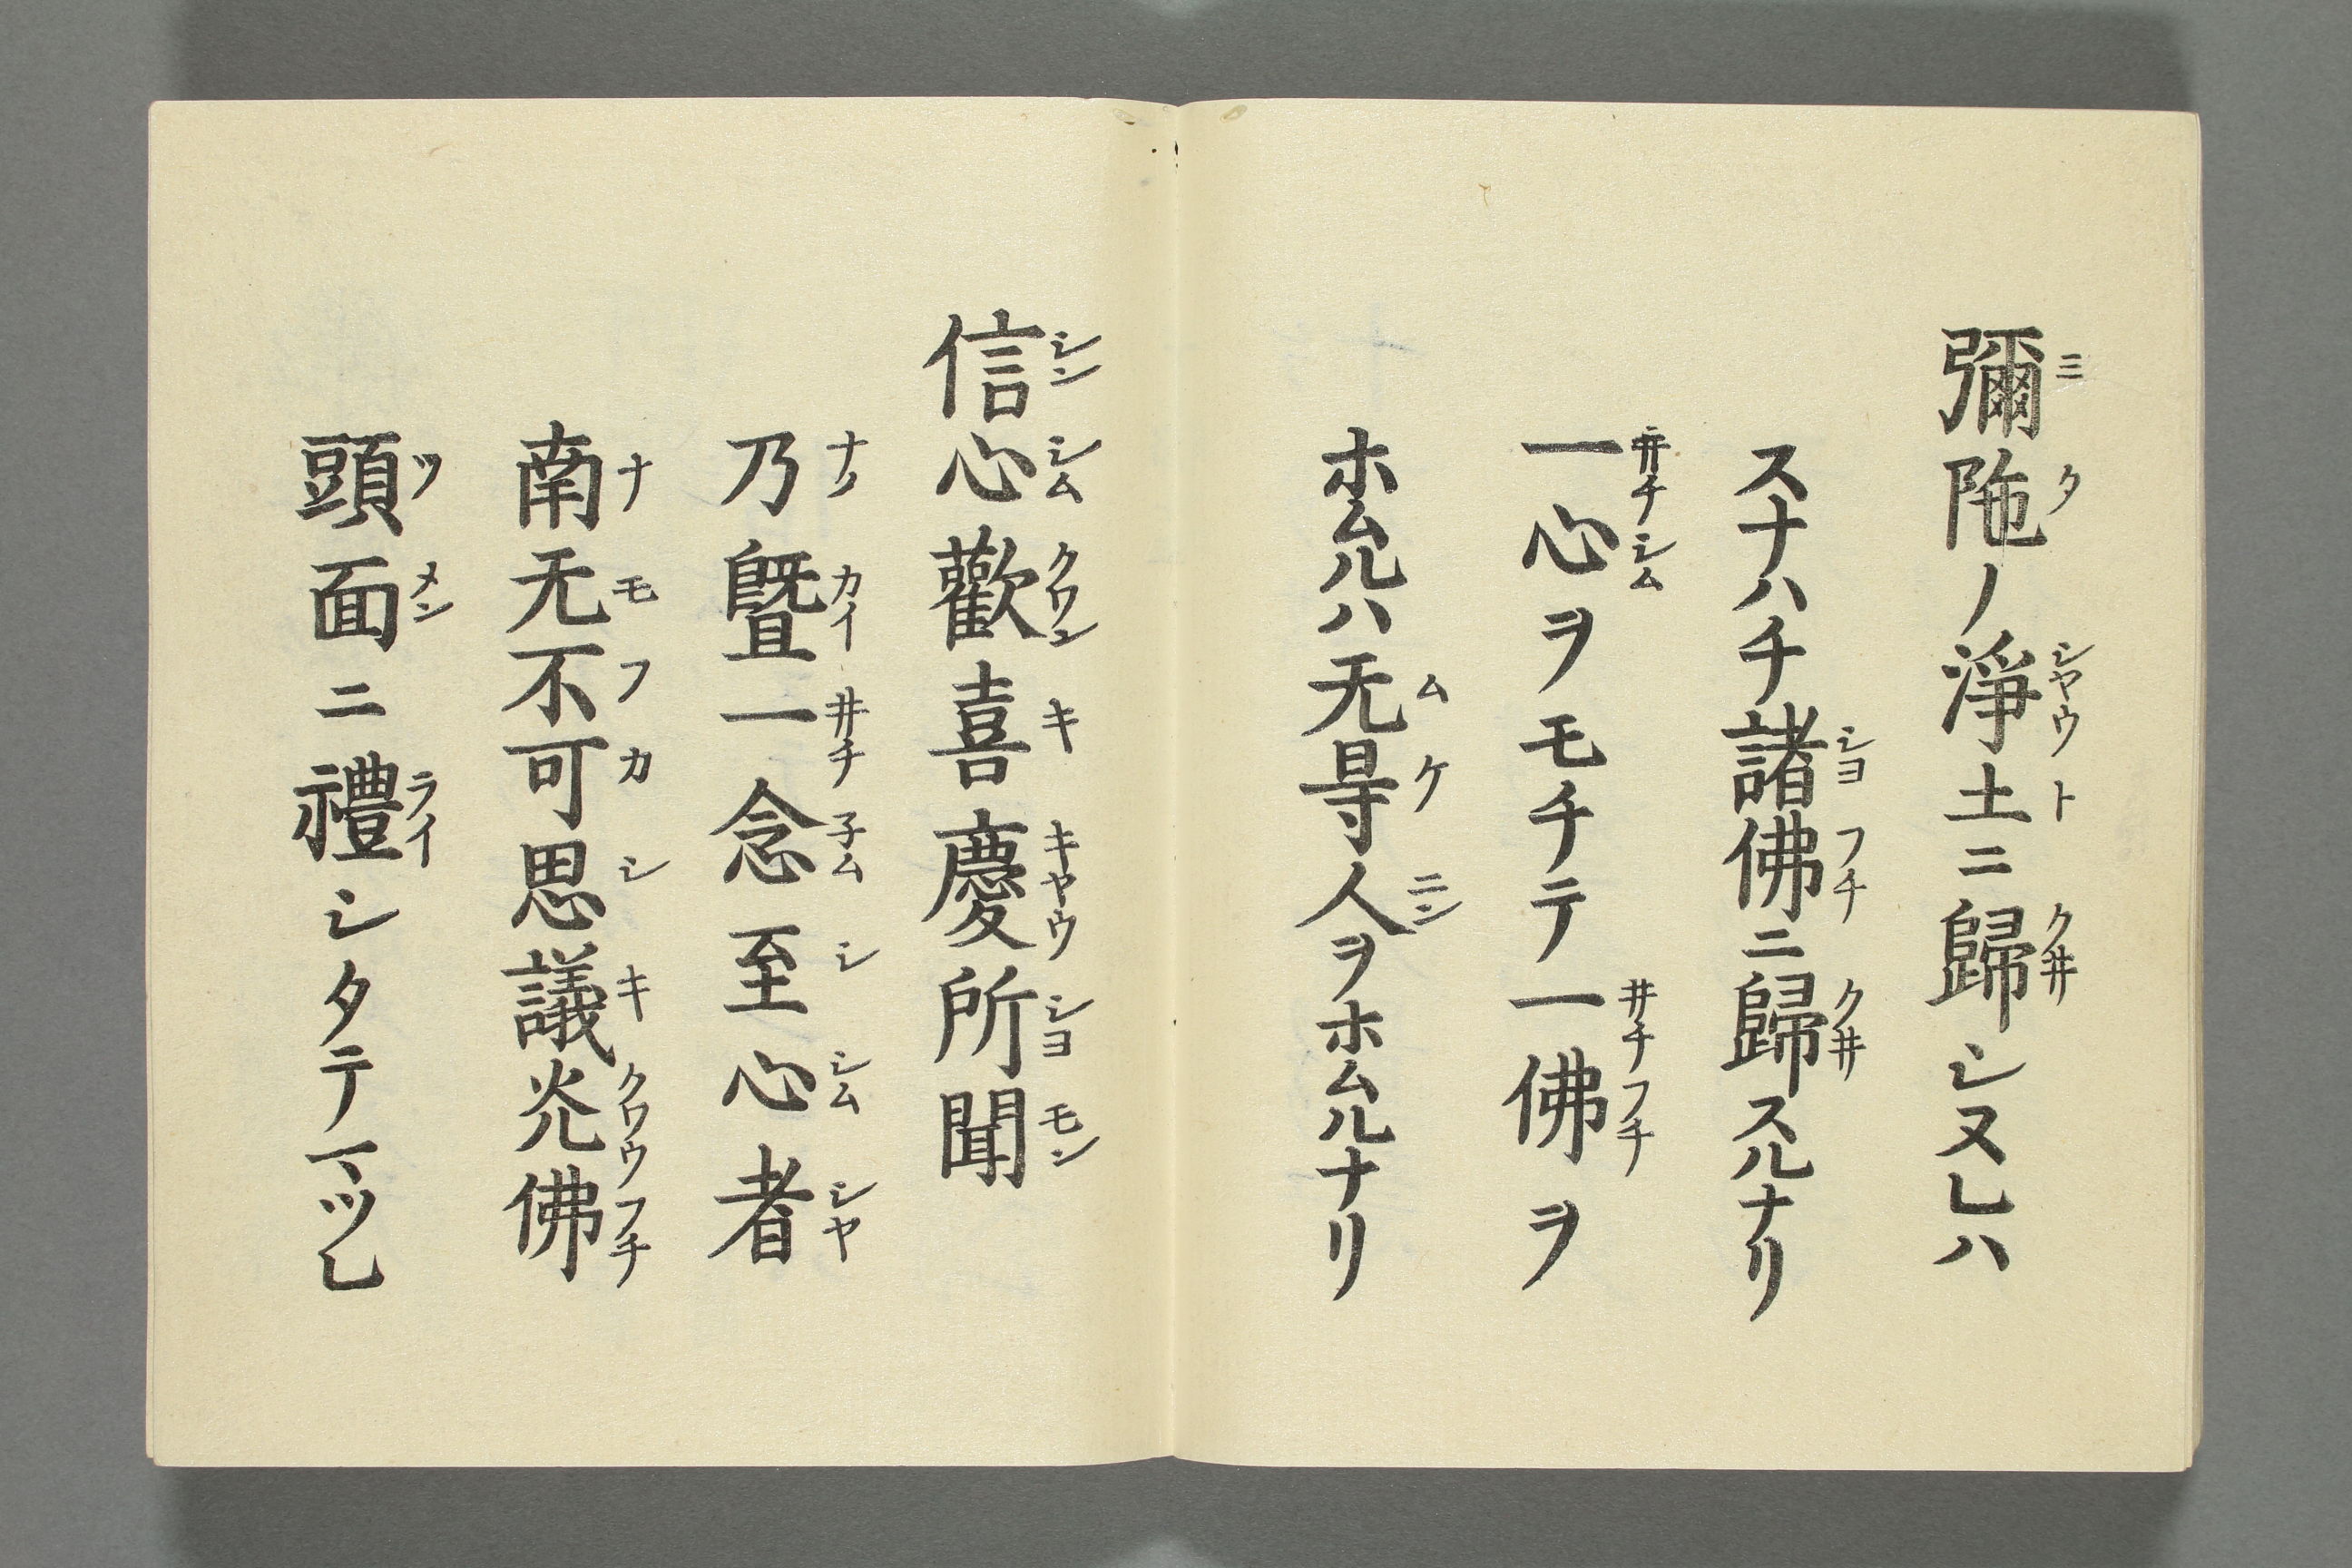 彌陁ノ淨土ニ歸シヌレハ
スナハチ諸佛ニ歸スルナリ
一心ヲモチテ一佛ヲ
ホムルハ无㝵人ヲホムルナリ
信心歡喜慶所聞
乃曁一念至心者
南无不可思議光佛
頭面ニ禮シタテマツレ